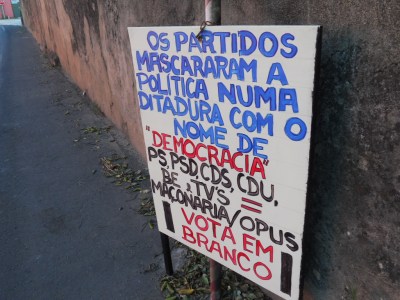 OS PARTIDOS
MASCARARAM A
POLÍTICA NUMA
DITADURA COM O
NOME DE
"DEMOCRACIA"
PS, PSD, CDS, CDU,
BE, TV'S, =
MAÇONARIA/OPUS
! VOTA EM !
BRANCO